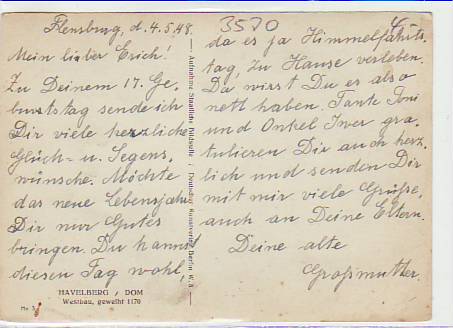 Flensburg, d. 4.5.48.
Mein lieber Erich!
Zu Deinem 17. Ge-
burtstag sende ich
Dir viele herzliche
Glück- u. Segens-
wünsche. Möchte
das neue Lebensjahr
Dir nur Gutes
bringen. Du kannst
diesen Tag wohl,
HAVELBERG / DOM
Westbau, geweiht 1170
Aufnahme Staatliche Bildstelle / Deutscher Kunstverlag Berlin W. 8
3570
da es ja Himmelfahrts-
tag, zu Hause verleben.
Da wirst Du es also
nett haben. Tante Toni
und Onkel Iwer gra-
tulieren Dir auch herz-
lich und senden Dir
mit mir viele Grüße,
auch an Deine Eltern.
Deine alte
Großmutter.